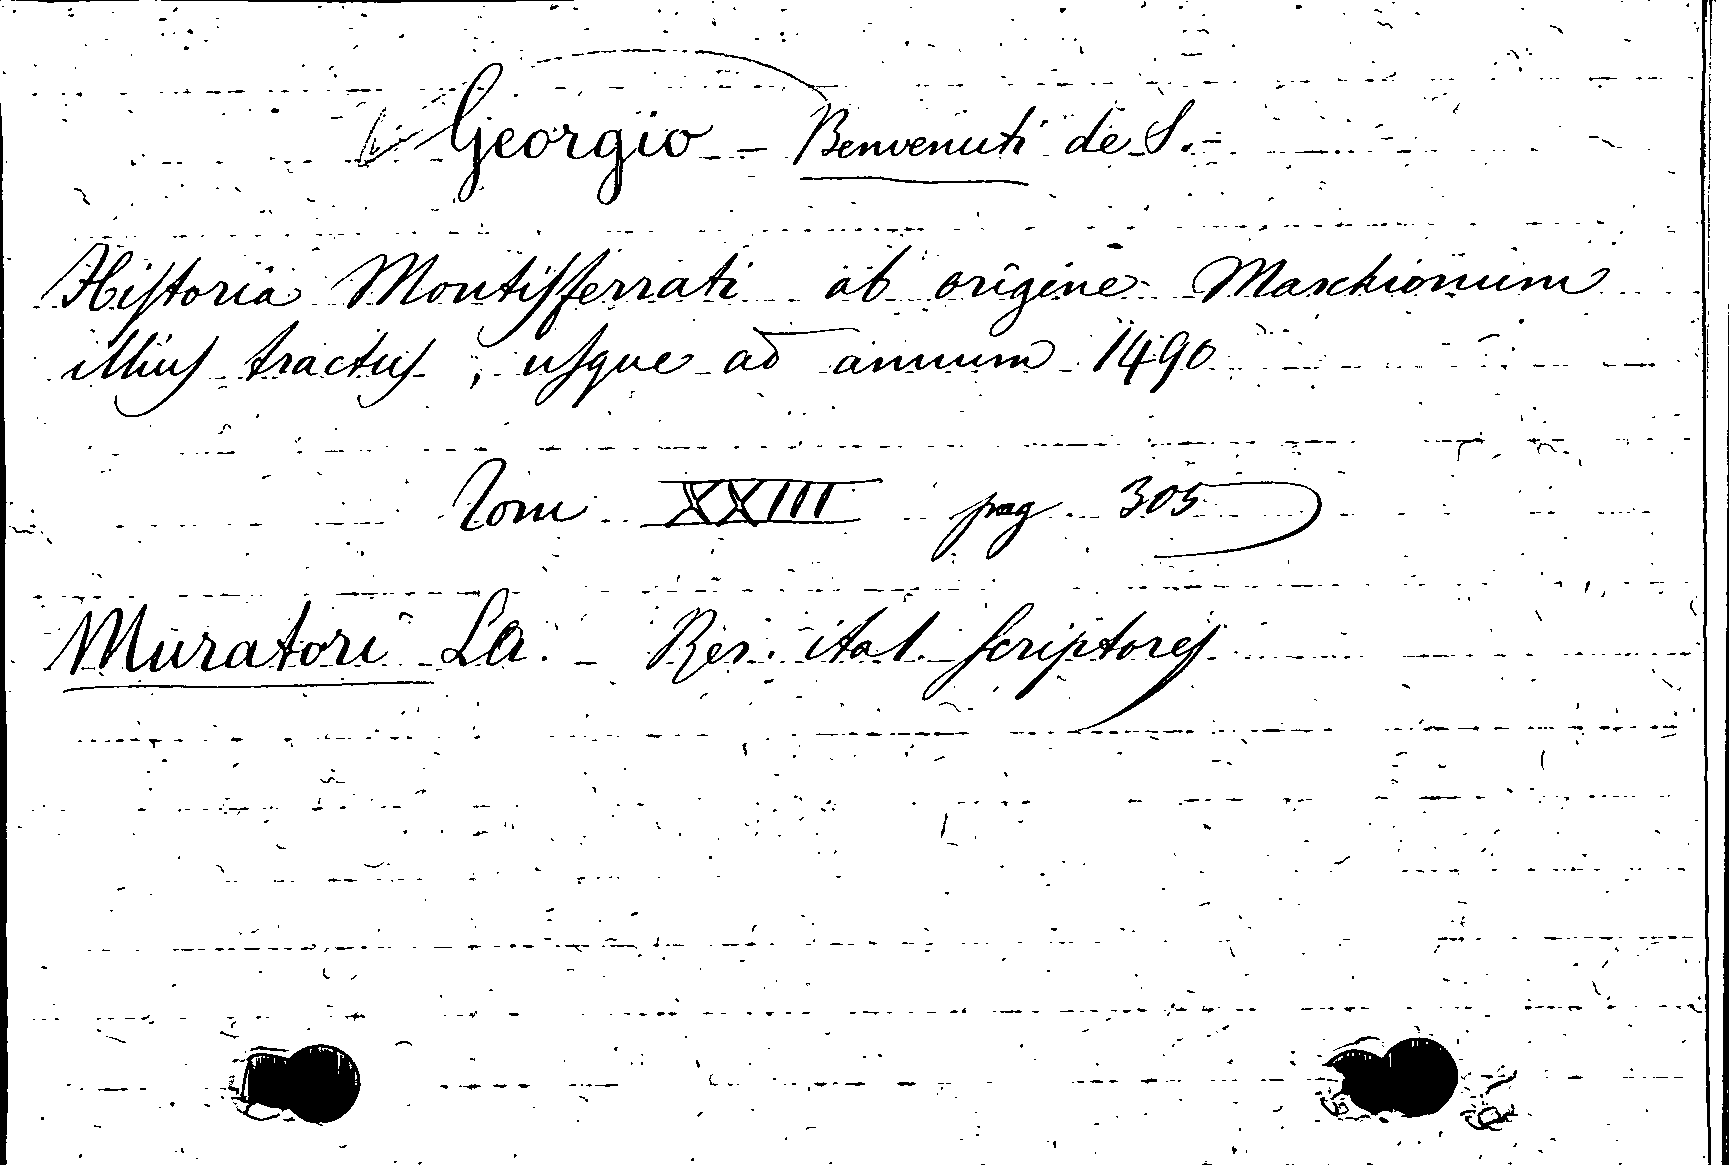 Georgio - Benvenuti de S. -
Historia Montisferrati ab origine Marchionum
illius tractus, usque ad annum 1490
Tom XXIII pag 305
Muratori La. - Rer. ital. Scriptores